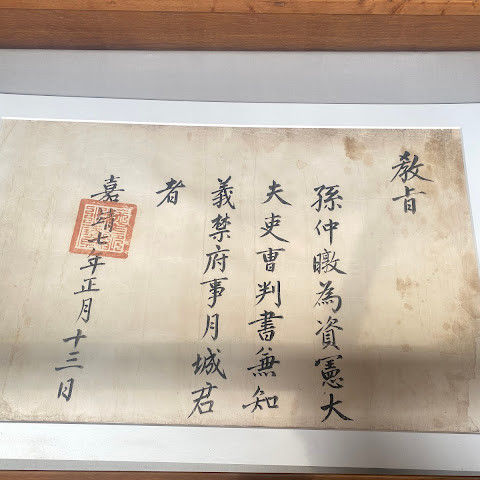 教旨
孫仲暾為資憲大
夫吏曹判書兼知
義禁府事月城君
者
嘉靖七年正月十三日